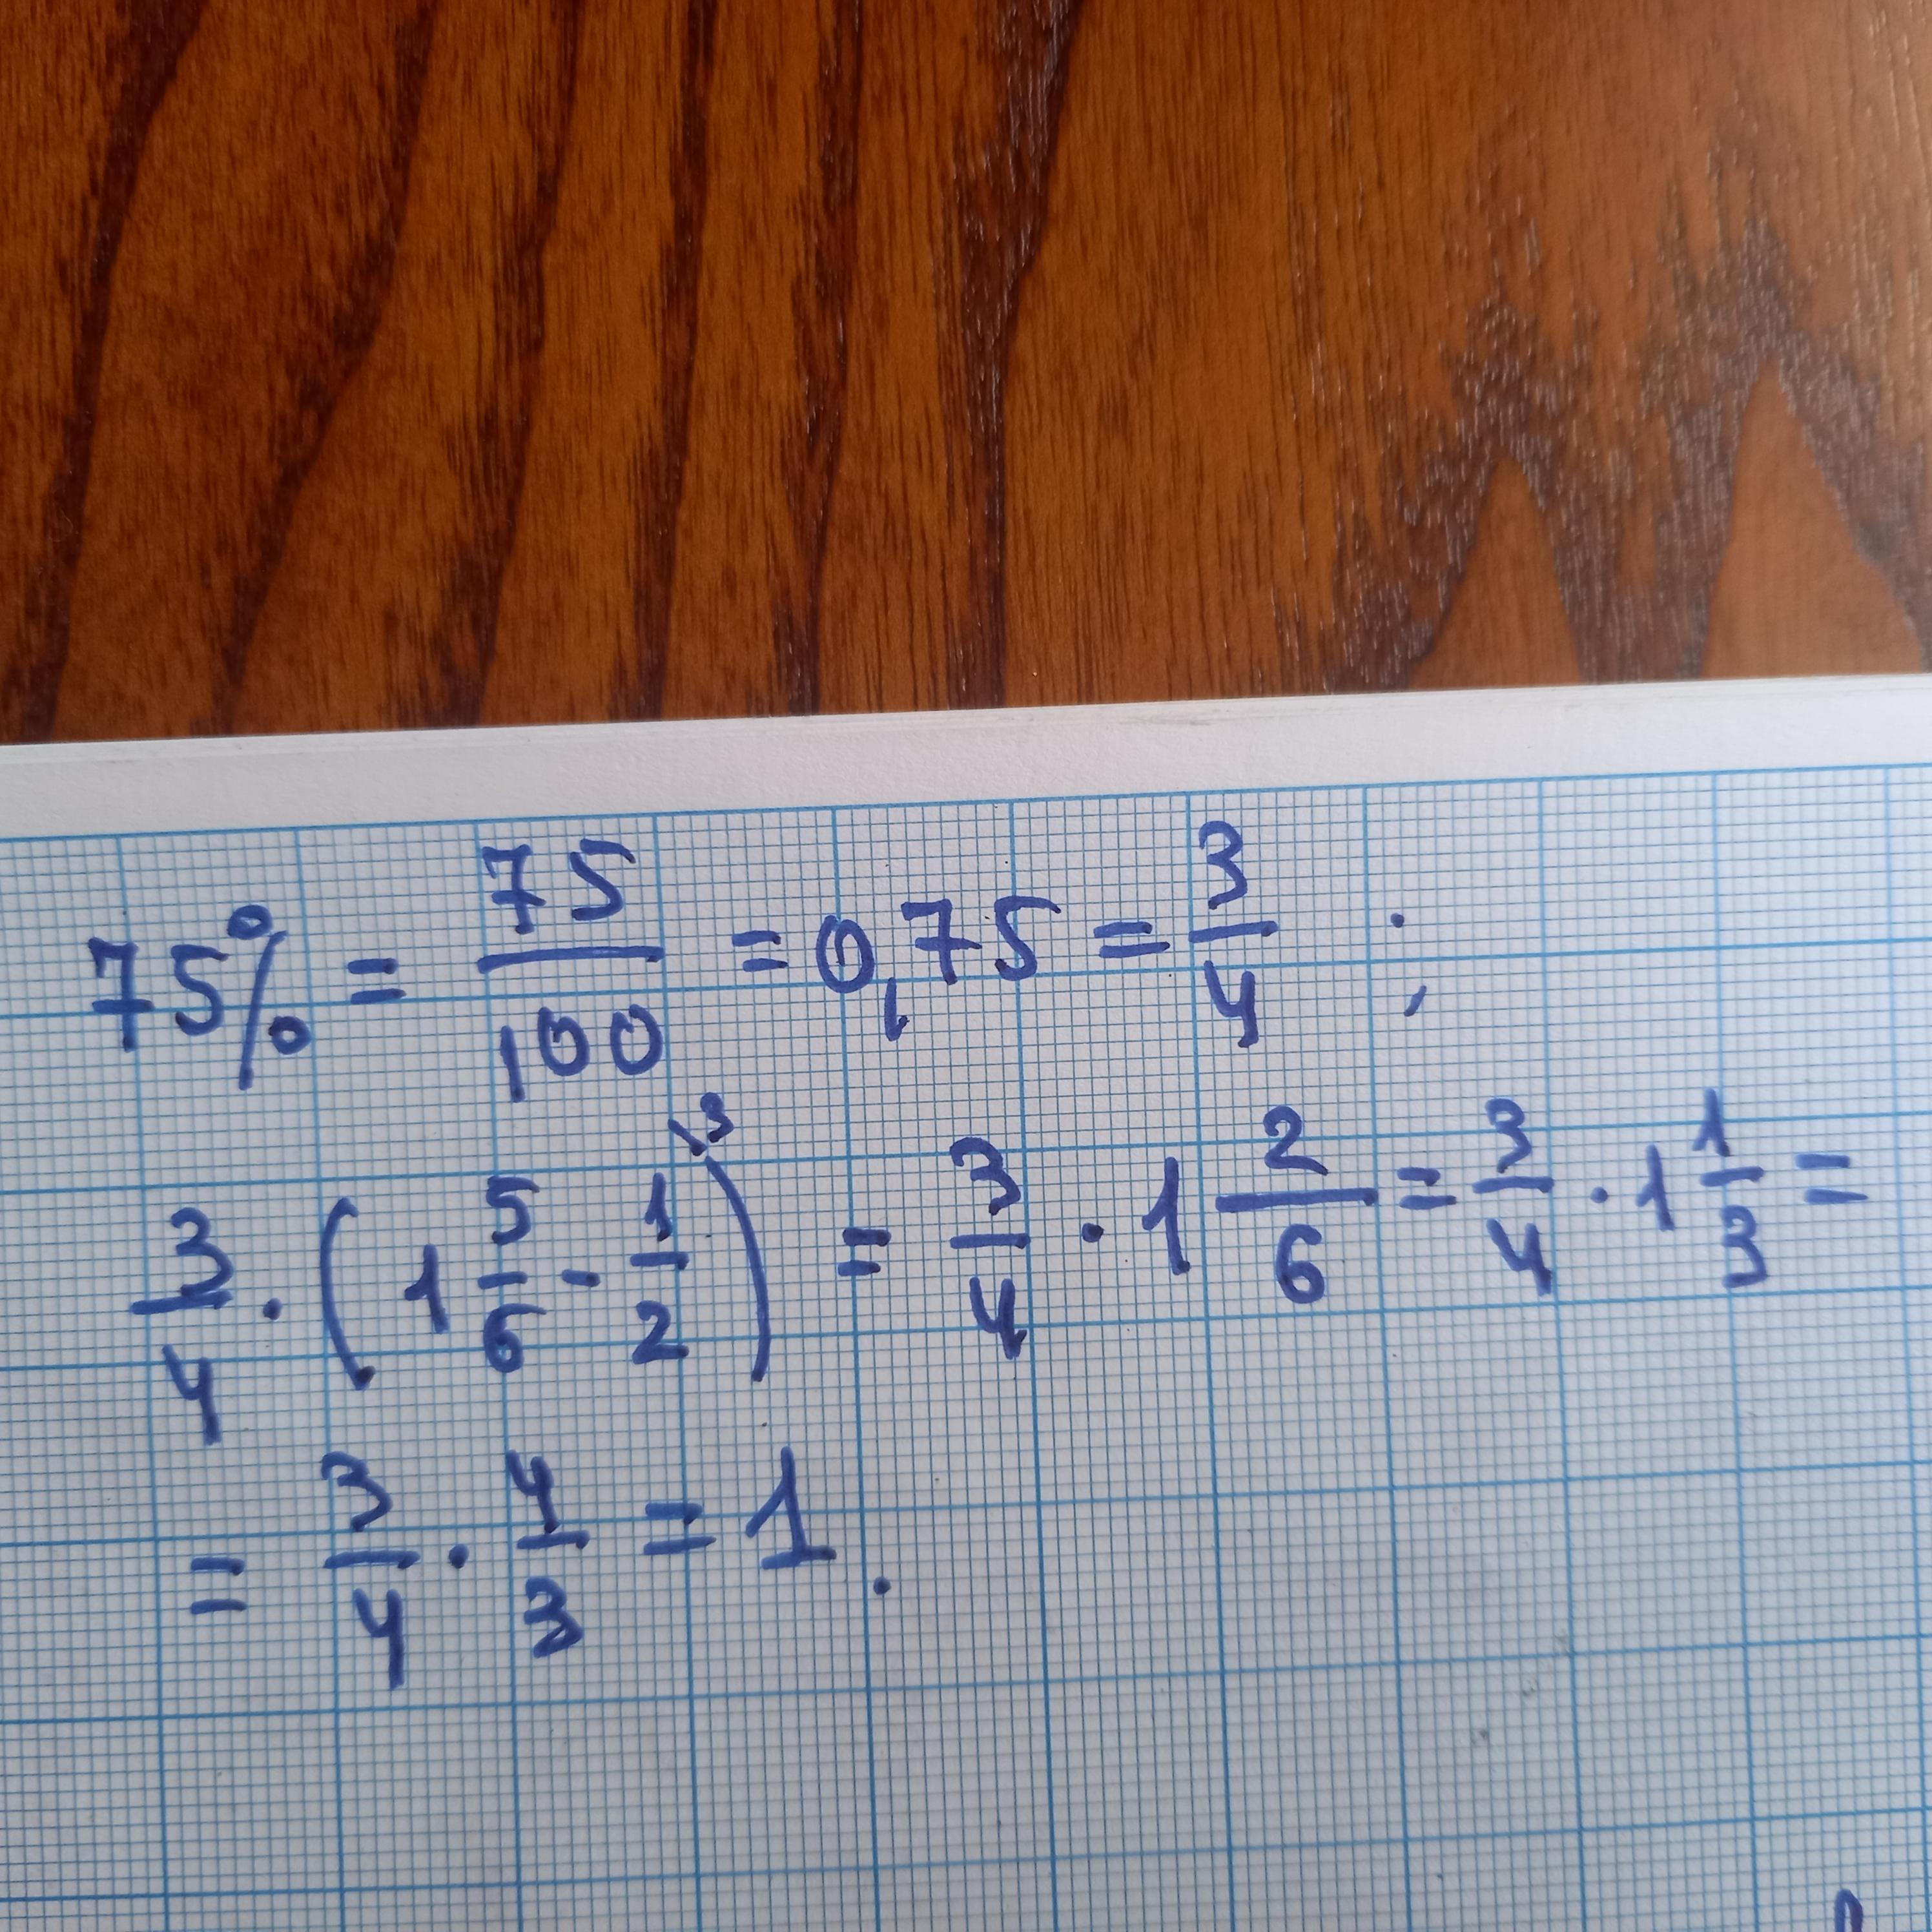 75% = 75/100 = 0,75 = 3/4 ;
3/4 · (1 5/6 - 1/2 \3) = 3/4 · 1 2/6 = 3/4 · 1 1/3 =
= 3/4 · 4/3 = 1.